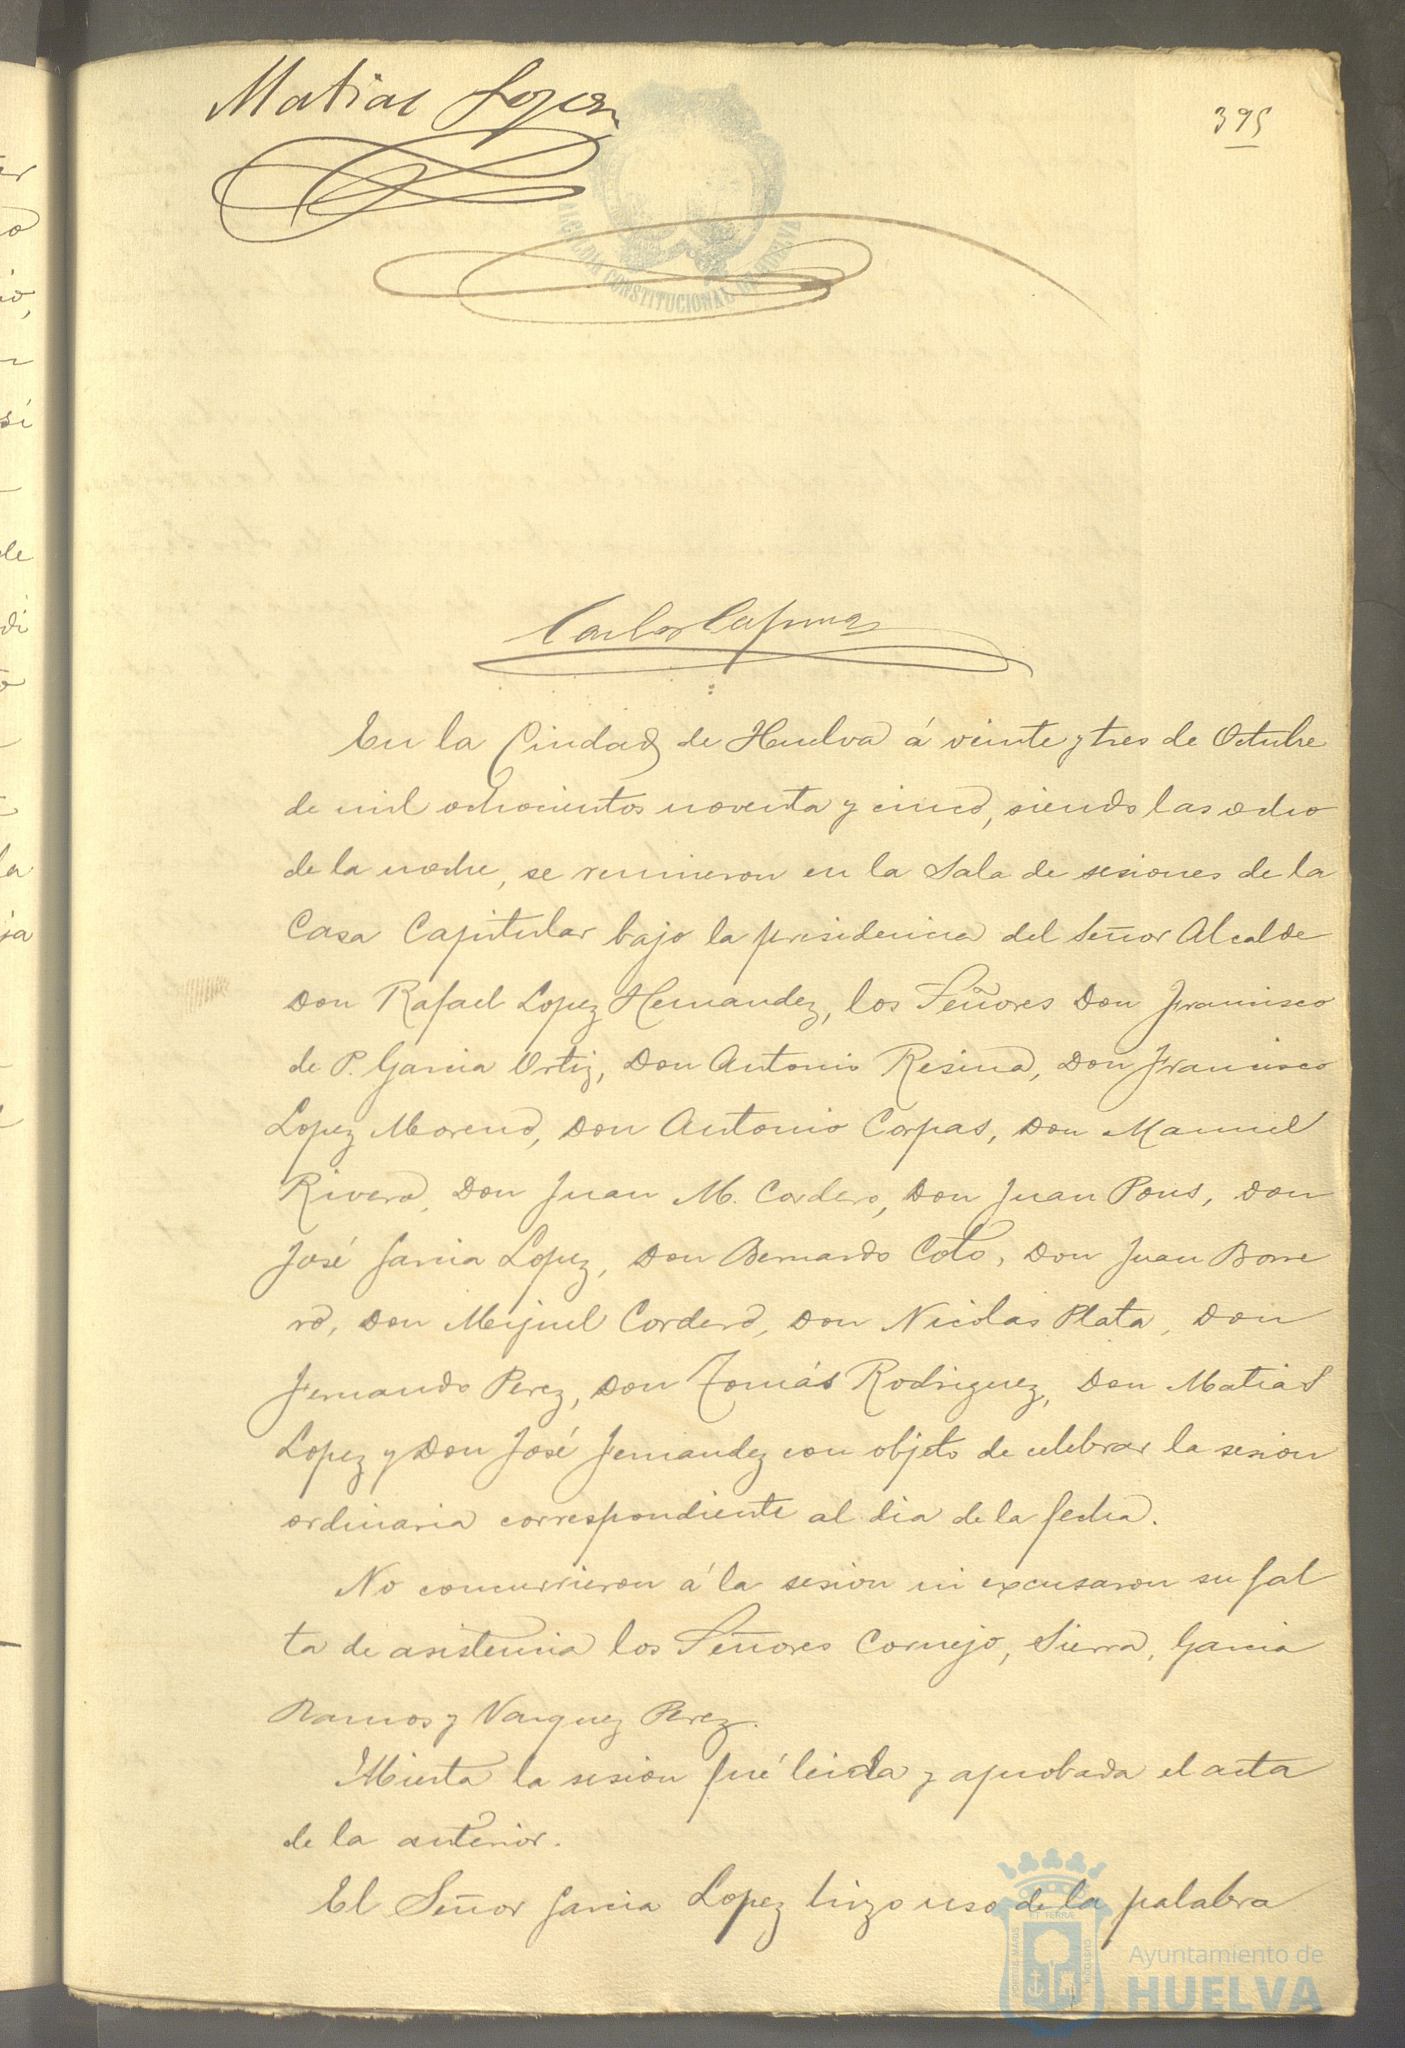 Matias Lopez
395
ALCALDIA CONSTITUCIONAL DE HUELVA
Carlos
En la Ciudad de Huelva á veinte y tres de Octubre
de mil ochocientos noventa y cinco, siendo las ocho
de la noche, se reunieron en la Sala de sesiones de la
Casa Capitular bajo la presidencia del Señor Alcalde
Don Rafael Lopez Hernandez, los Señores Don Francisco
de P. Garcia Ortiz, Don Antonio Resina, Don Francisco
Lopez Moreno, Don Antonio Corpas, Don Manuel
Rivero, Don Juan M. Cordero, Don Juan Pons, Don
José Garcia Lopez, Don Bernardo Coto, Don Juan Borre
ro, Don Miguel Cordero, Don Nicolas Plata, Don
Fernando Perez, Don Tomás Rodriguez, Don Matias
Lopez y Don José Fernandez con objeto de celebrar la sesion
ordinaria correspondiente al dia de la fecha.
No concurrieron á la sesion ni excusaron su fal
ta de asistencia los Señores Cornejo, Sierra, Garcia
Ramos y Vazquez Perez.
Abierta la sesion fué leida y aprobada el acta
de la anterior.
El Señor Garcia Lopez hizo uso de la palabra
Ayuntamiento de
HUELVA